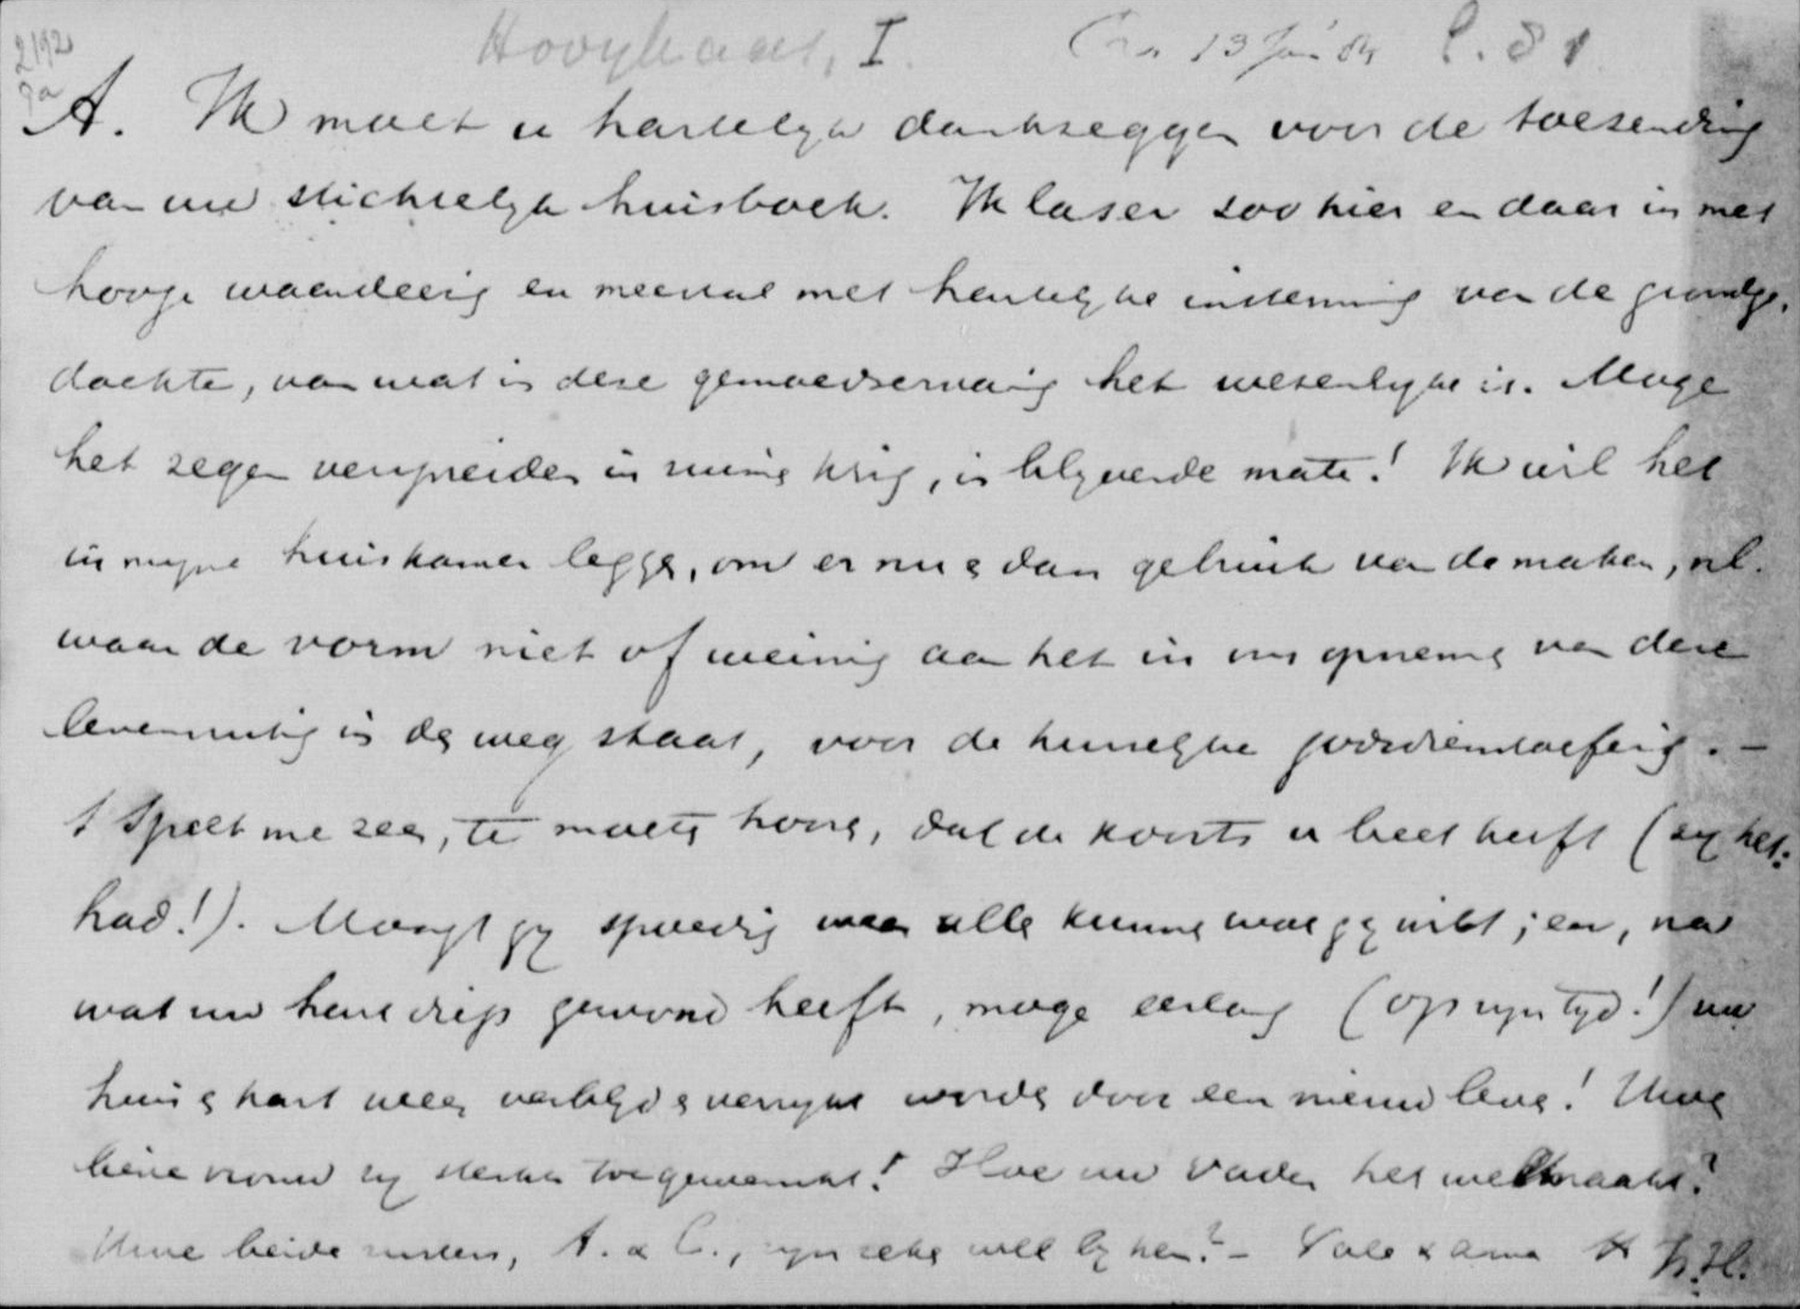 2192
ga
Hovy I. 13 Jan 81
A. Ik moet u hartelyk dankseggen voor de toesending
van uw stichtelyk huisboek. Ik las er soo hier en daar in met
hooge waardeering en meestal met hartelyke instemming van de grondge-
dachte, van wat in dese gemoedservaring het wesenlyke is. Moge
het segen verspreiden in ruime kring, in blyvende mate! Ik wil het
in myne huiskamer leggen, om er nu & dan gebruik van de maken, nl.
waar de vorm niet of weinig aan het in ons opneming van dese
levensuiting in den weg staat, voor de huiselyke godsdienstoefening. -
't Speet me seer, te moeten hooren, dat de koorts u beet heeft (sy het:
had!). Moogt gy spoedig weer alles kunnen wat gy wilt; en, na
wat uw hart diep gewond heeft, moge eerlang (op syn tyd!) uw
huis & hart weer verblyd & verrykt worden door een nieuw leven! Uwe
lieve vrouw sy sterkte toegewenscht! Hoe uw vader het wel maakt?
Uwe beide susters, A. & C., syn seker wel by hen? - Vale & ama H. H.